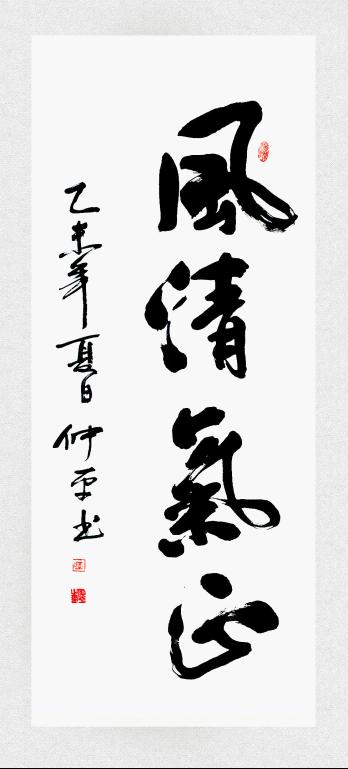 風清氣正
乙未年夏日仲平书